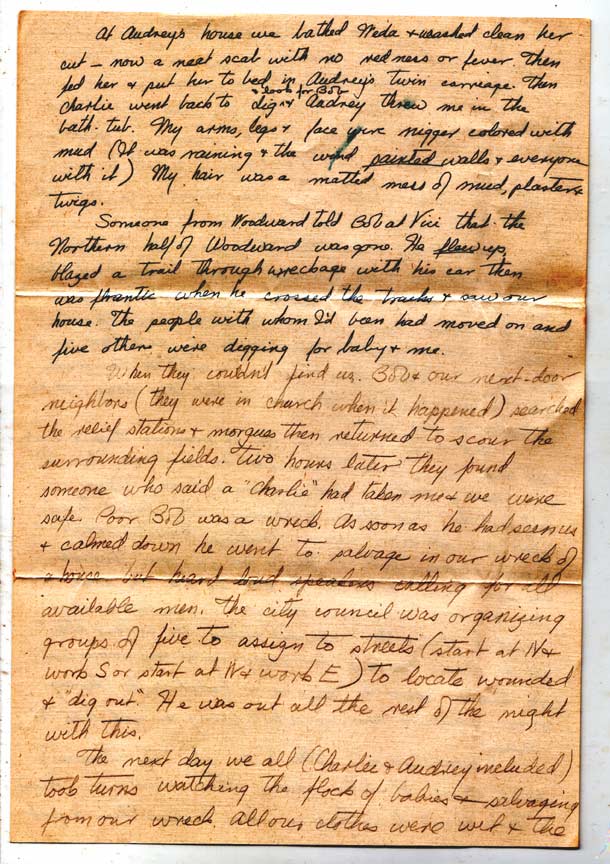 At Audrey's house we bathed Weda & washed clean her
cut – now a neat scab with no redness or fever. Then
fed her & put her to bed in Audrey's twin carriage. Then
& look for Bob
Charlie went back to dig & Audrey threw me in the
bath-tub. My arms, legs & face were nigger colored with
mud (It was raining & the wind painted walls & everyone
with it) My hair was a matted mess of mud, plaster &
twigs.
Someone from Woodward told Bob at Vici that the
Northern half of Woodward was gone. He flew up,
blazed a trail through wreckage with his car then
was phrantic when he crossed the tracks & saw our
house. The people with whom I'd been had moved on and
five others were digging for baby & me.
When they couldn't find us. Bob & our next-door
neighbors (they were in church when it happened) searched
the relief stations & morgues then returned to scour the
surrounding fields. Two hours later they found
someone who said a "Charlie" had taken me & we were
safe. Poor Bob was a wreck. As soon as he had seen us
& calmed down he went to salvage in our wreck of
a house but heard loud speakers calling for all
available men. The city council was organizing
groups of five to assign to streets (start at N &
work S or start at W & work E) to locate wounded
& "dig out". He was out all the rest of the night
with this.
The next day we all (Charlie & Audrey included)
took turns watching the flock of babies & salvaging
from our wreck. All our clothes were wet & the